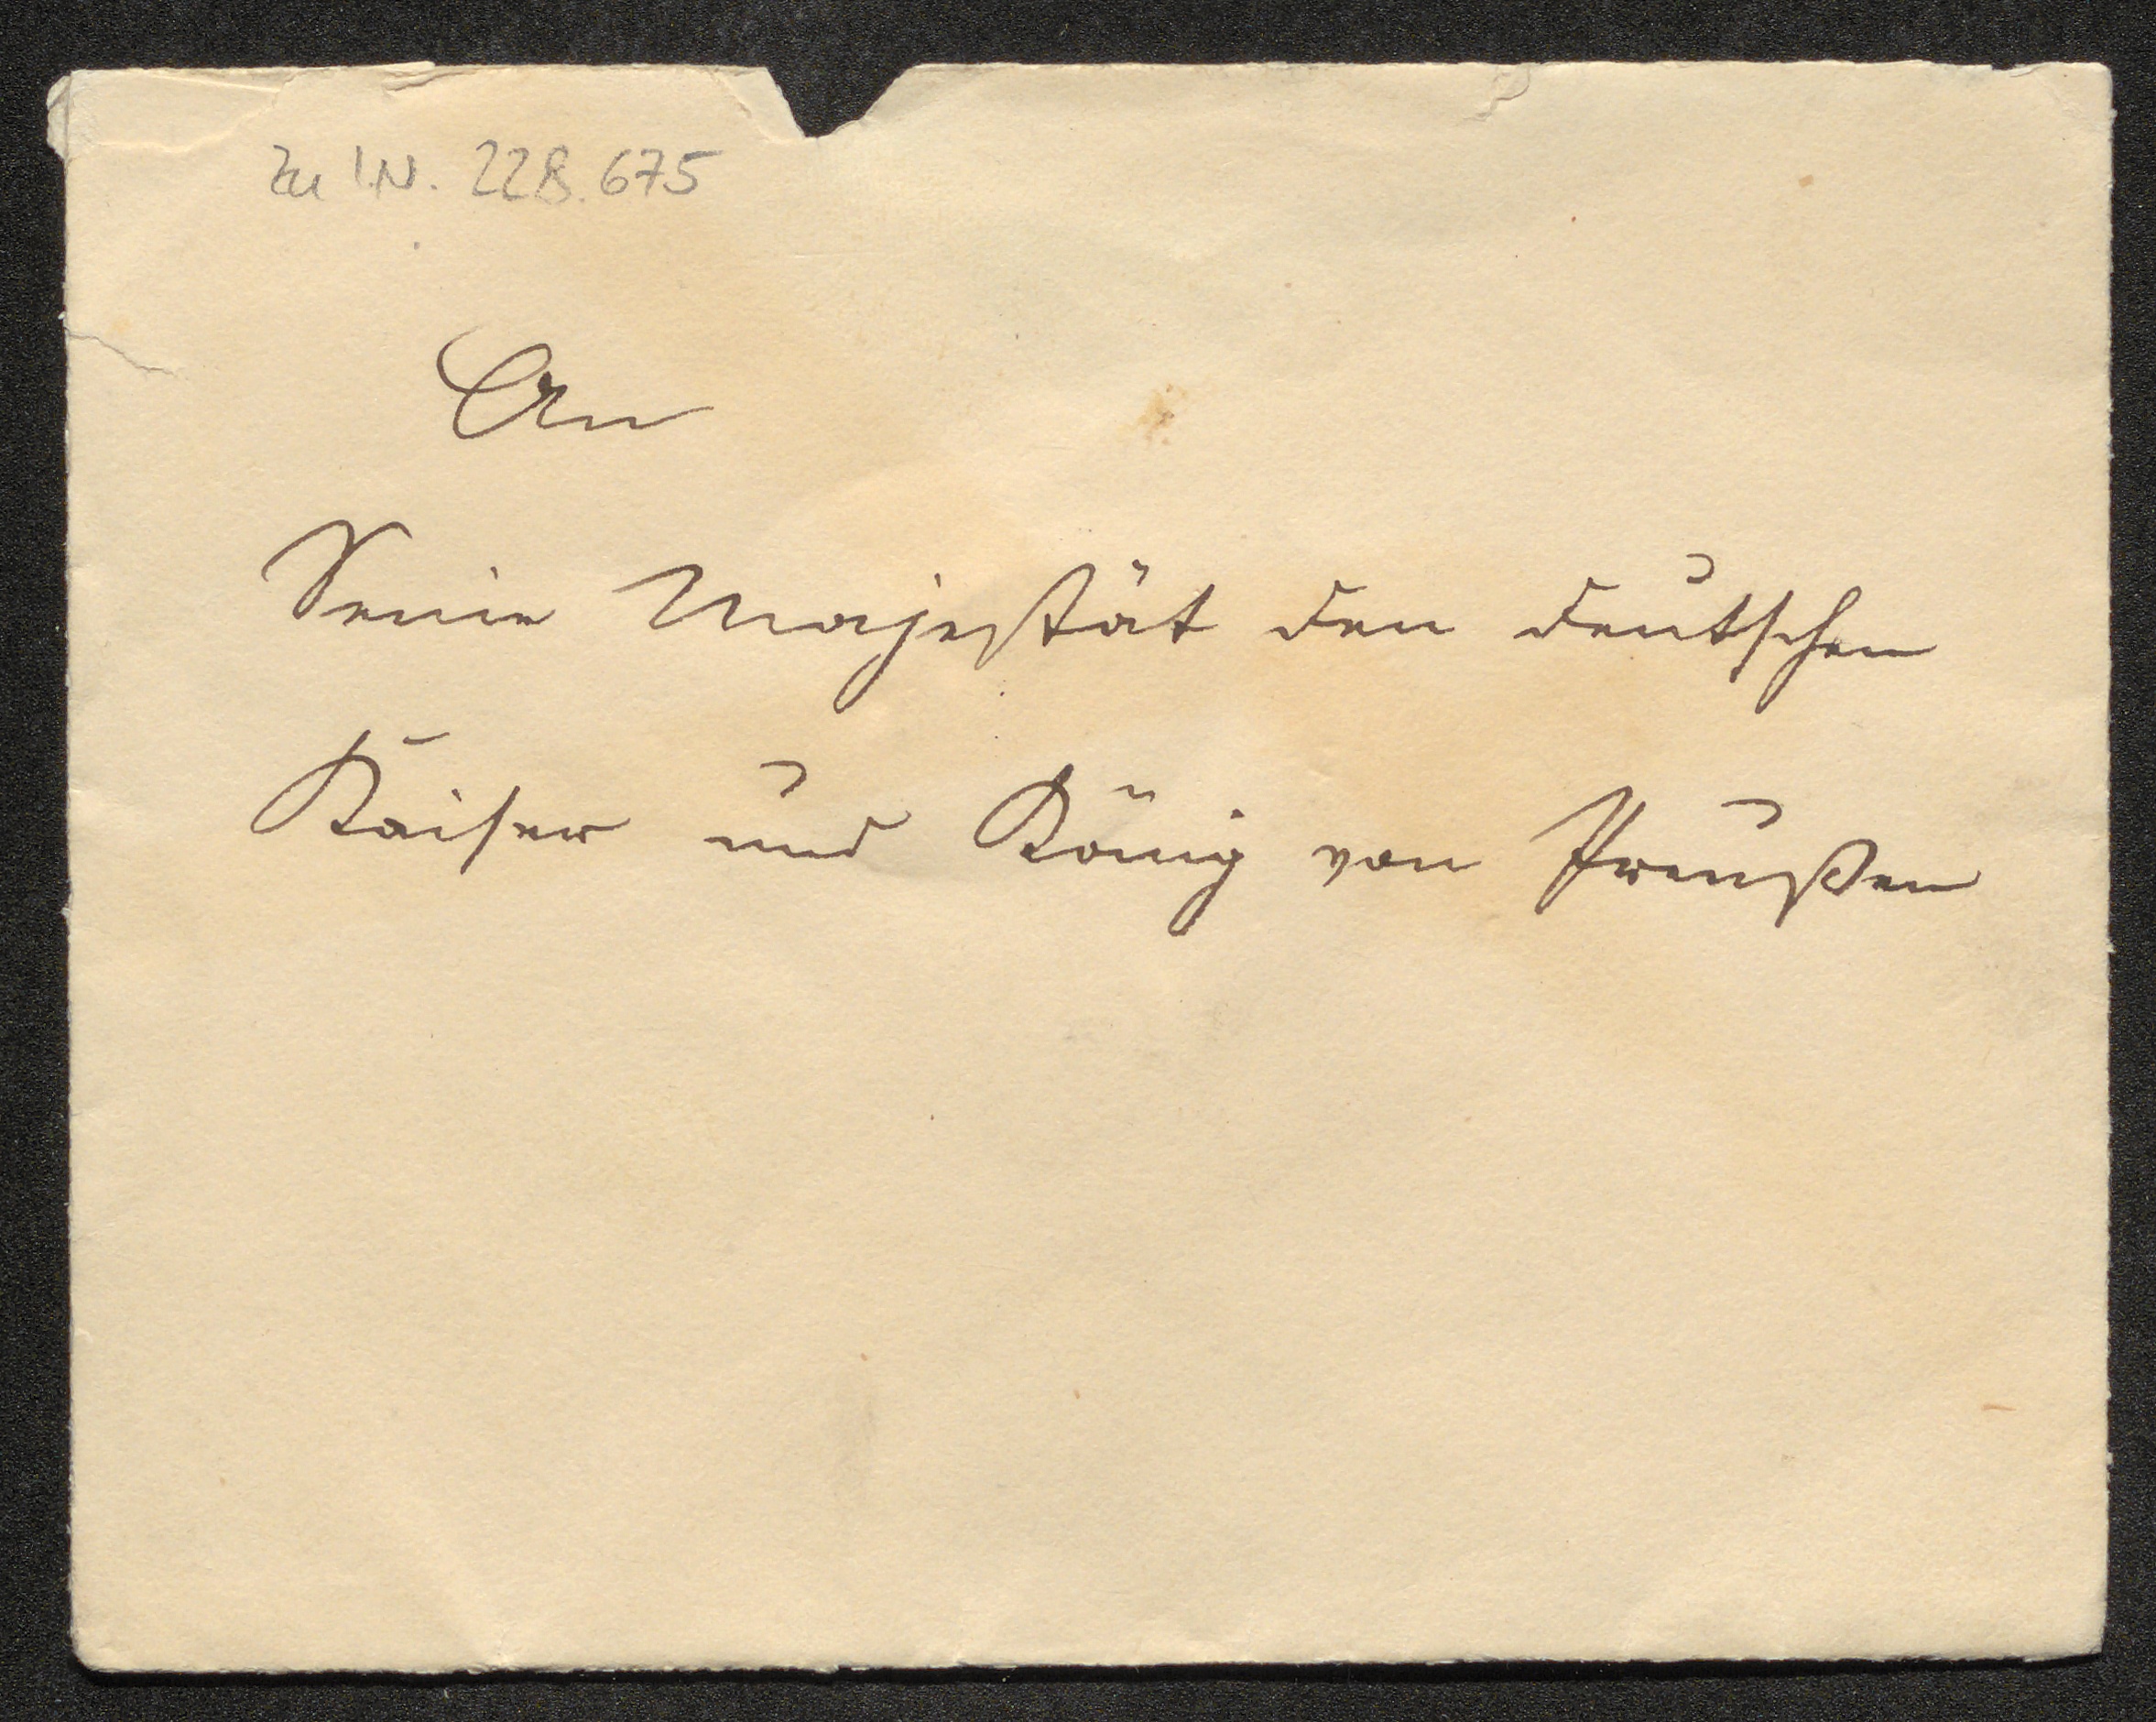 Zu I.N. 228.675
An
Seine Majestät den deutschen
Kaiser und König von Preußen